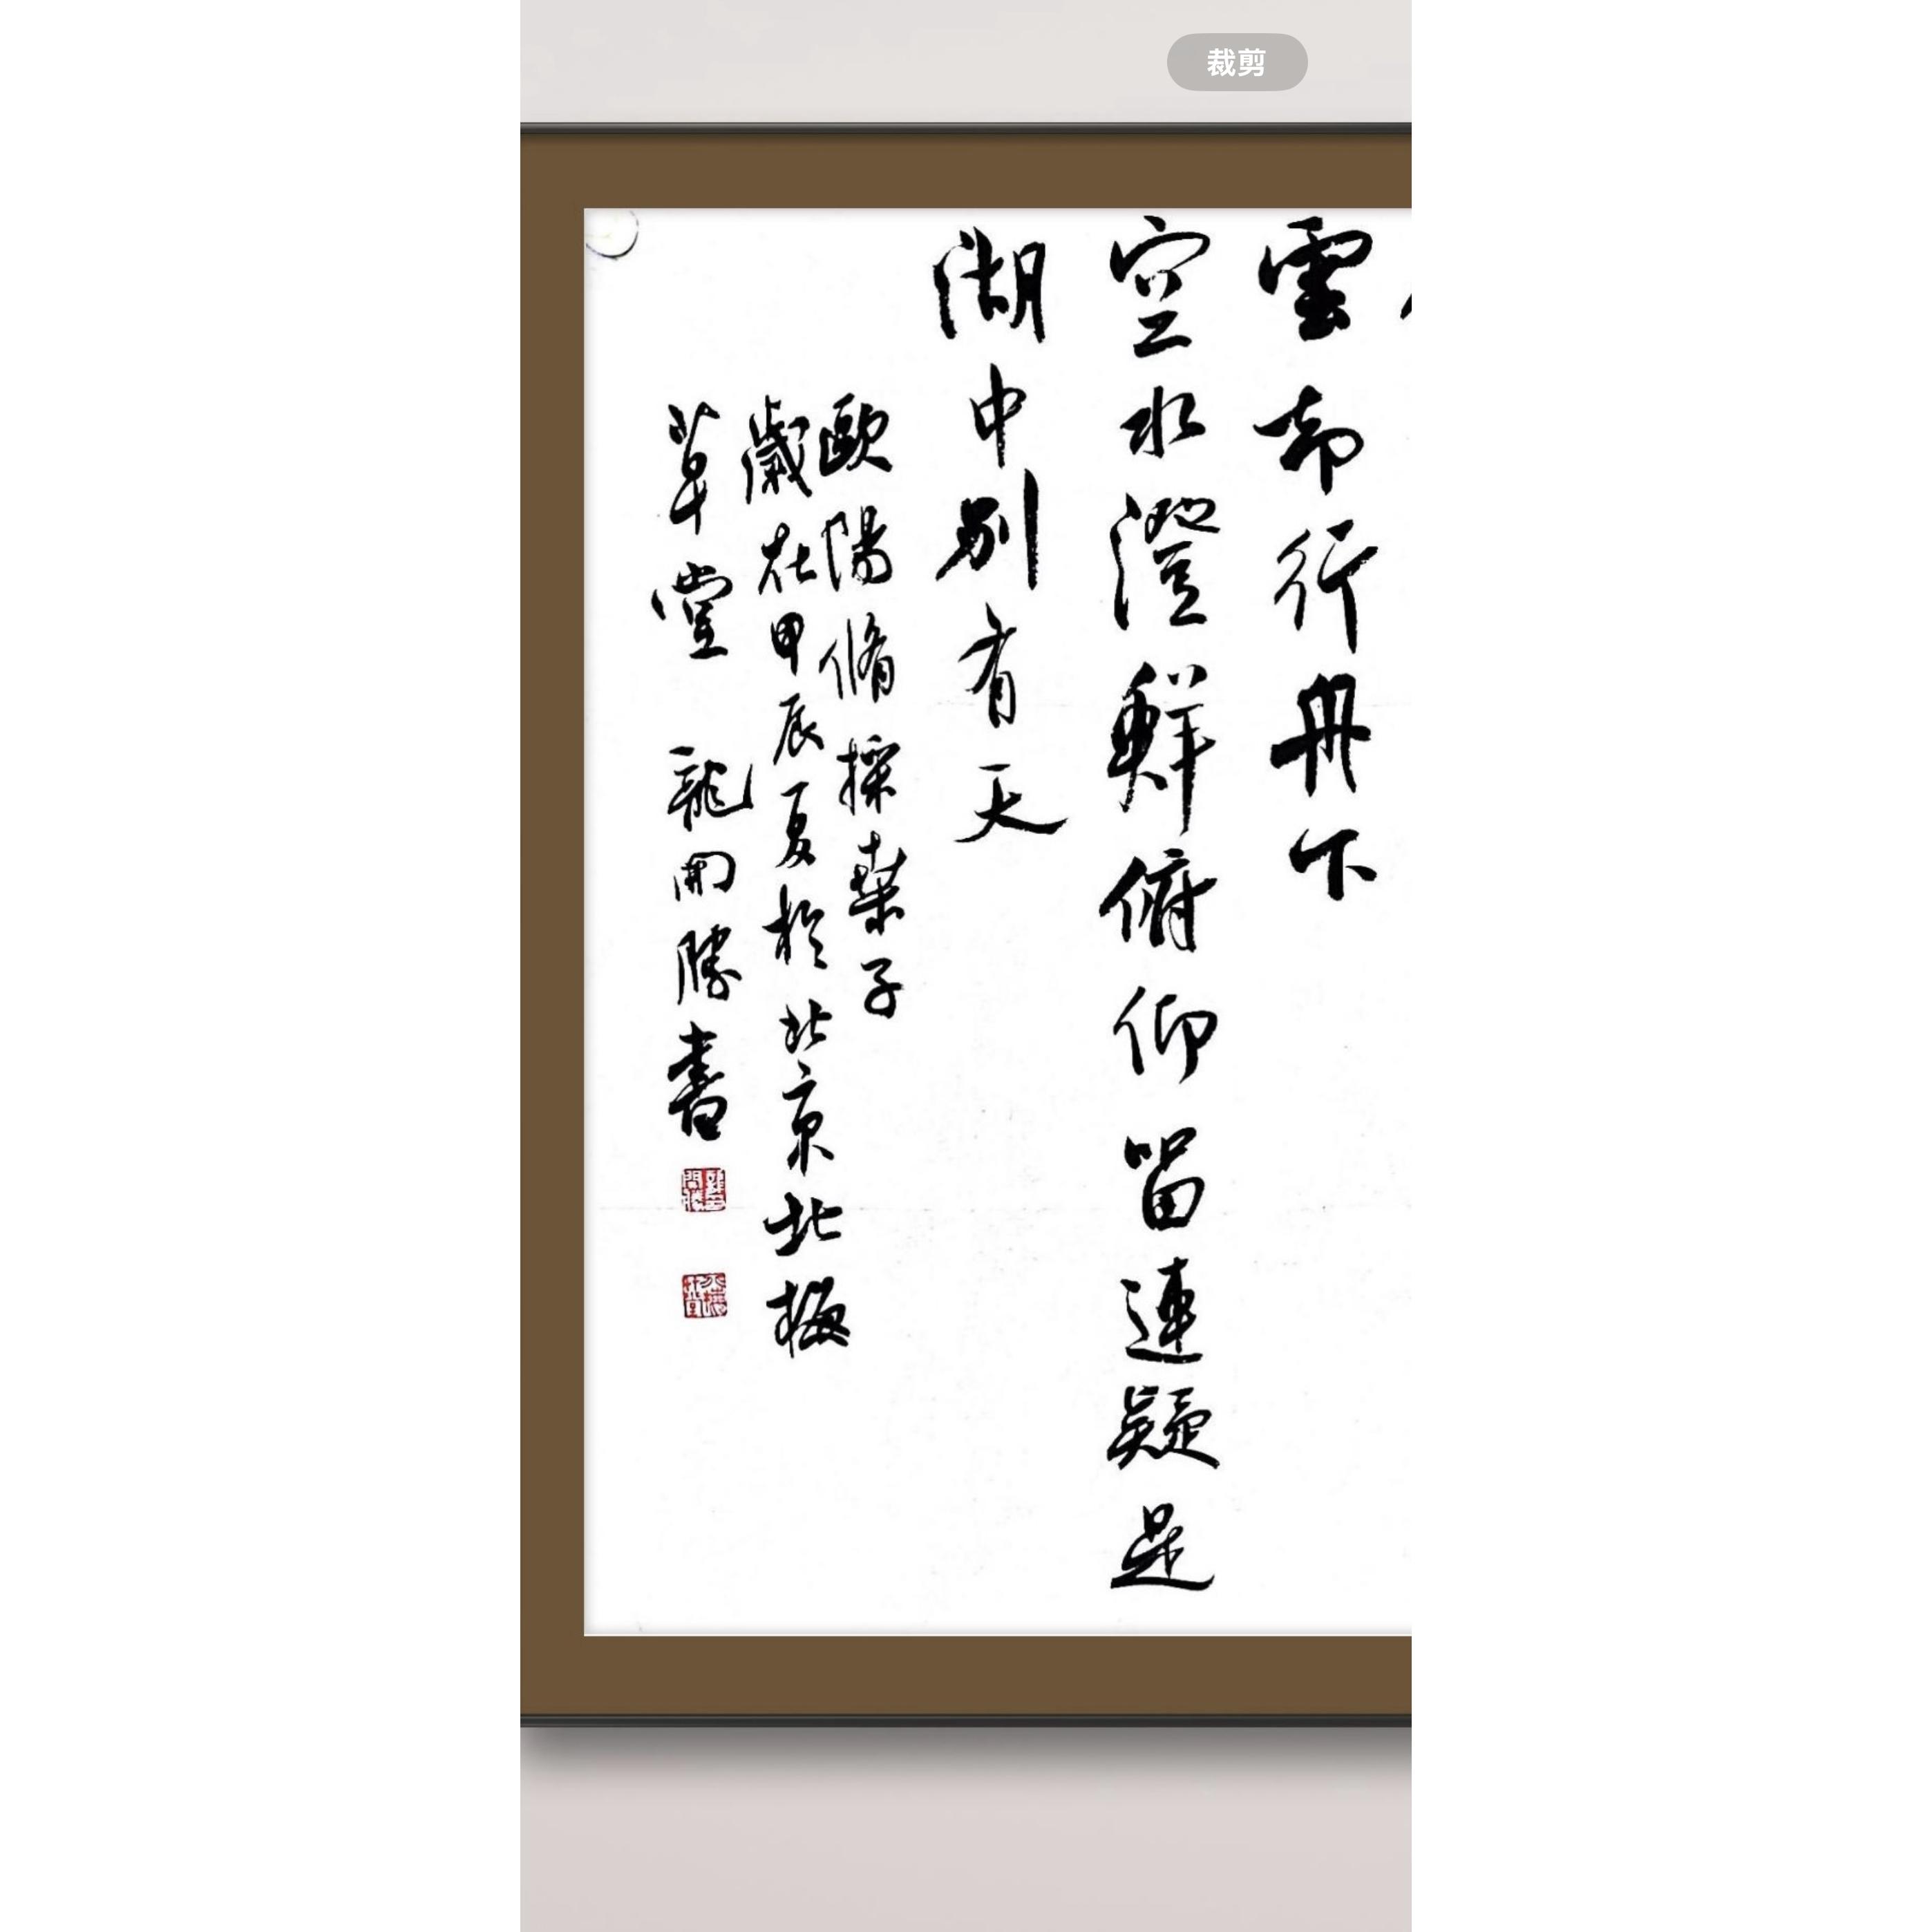 裁剪
雲却行舟下
空水澄鮮俯仰留連疑是
湖中別有天
歐陽脩採桑子
歲在甲辰夏於北京北梅
草堂 龍開勝書